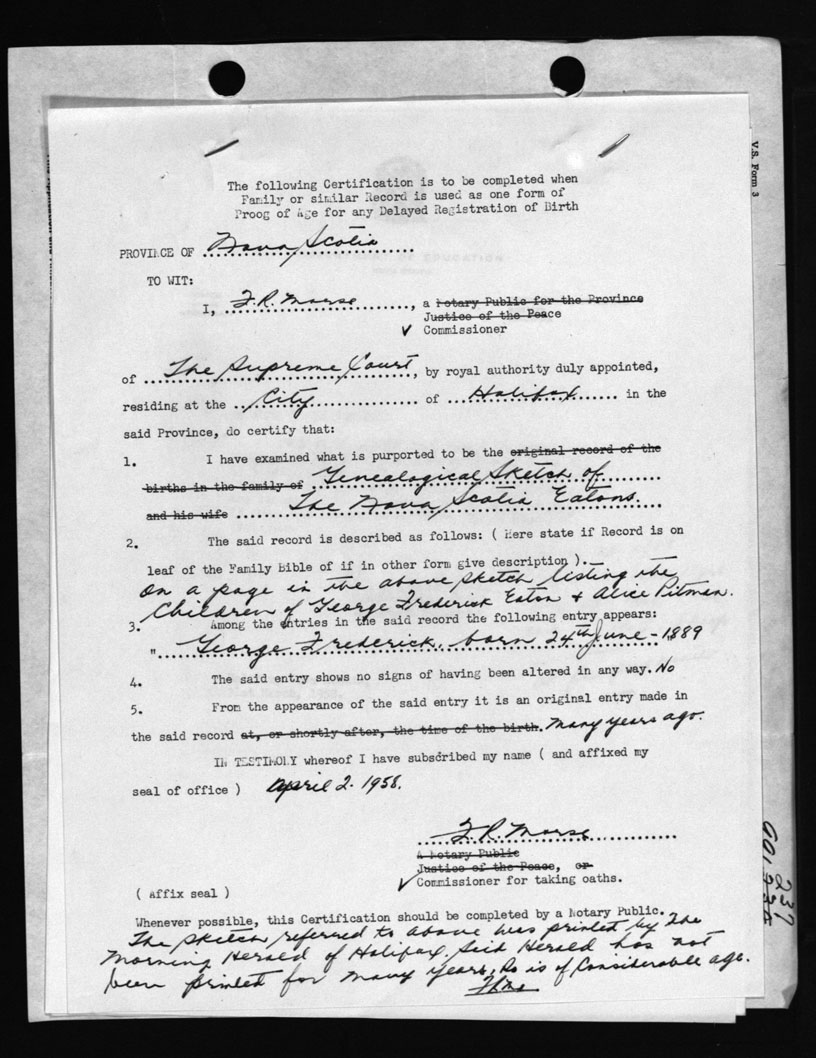 V.S. Form 3
The following Certification is to be completed when
Family or similar Record is used as one form of
Proog of Age for any Delayed Registration of Birth
PROVINCE OF Nova Scotia
TO WIT:
I, F.R. Morse, a Notary Public for the Province
Justice of the Peace
✓ Commissioner
of The Supreme Court, by royal authority duly appointed,
residing at the City of Halifax in the
said Province, do certify that:
1. I have examined what is purported to be the original record of the
births in the family of Genealogical Sketch of
and his wife The Nova Scotia Eatons.
2. The said record is described as follows: ( Here state if Record is on
leaf of the Family Bible of if in other form give description ).
On a page in the above sketch listing the
Children of George Frederick Eaton + Alice Pitman.
3. Among the entries in the said record the following entry appears:
" George Frederick, born 24th June - 1889
4. The said entry shows no signs of having been altered in any way. No
5. From the appearance of the said entry it is an original entry made in
the said record at, or shortly after, the time of the birth. Many years ago.
IN TESTIMOLY whereof I have subscribed my name ( and affixed my
seal of office ) April 2. 1958.
F.R. Morse
A Notary Public
Justice of the Peace, or
✓ Commissioner for taking oaths.
( Affix seal )
Whenever possible, this Certification should be completed by a Notary Public.
The sketch referred to above was printed by The
Morning Herald of Halifax. Said Herald has not
been printed for many years, so is of considerable age.
237